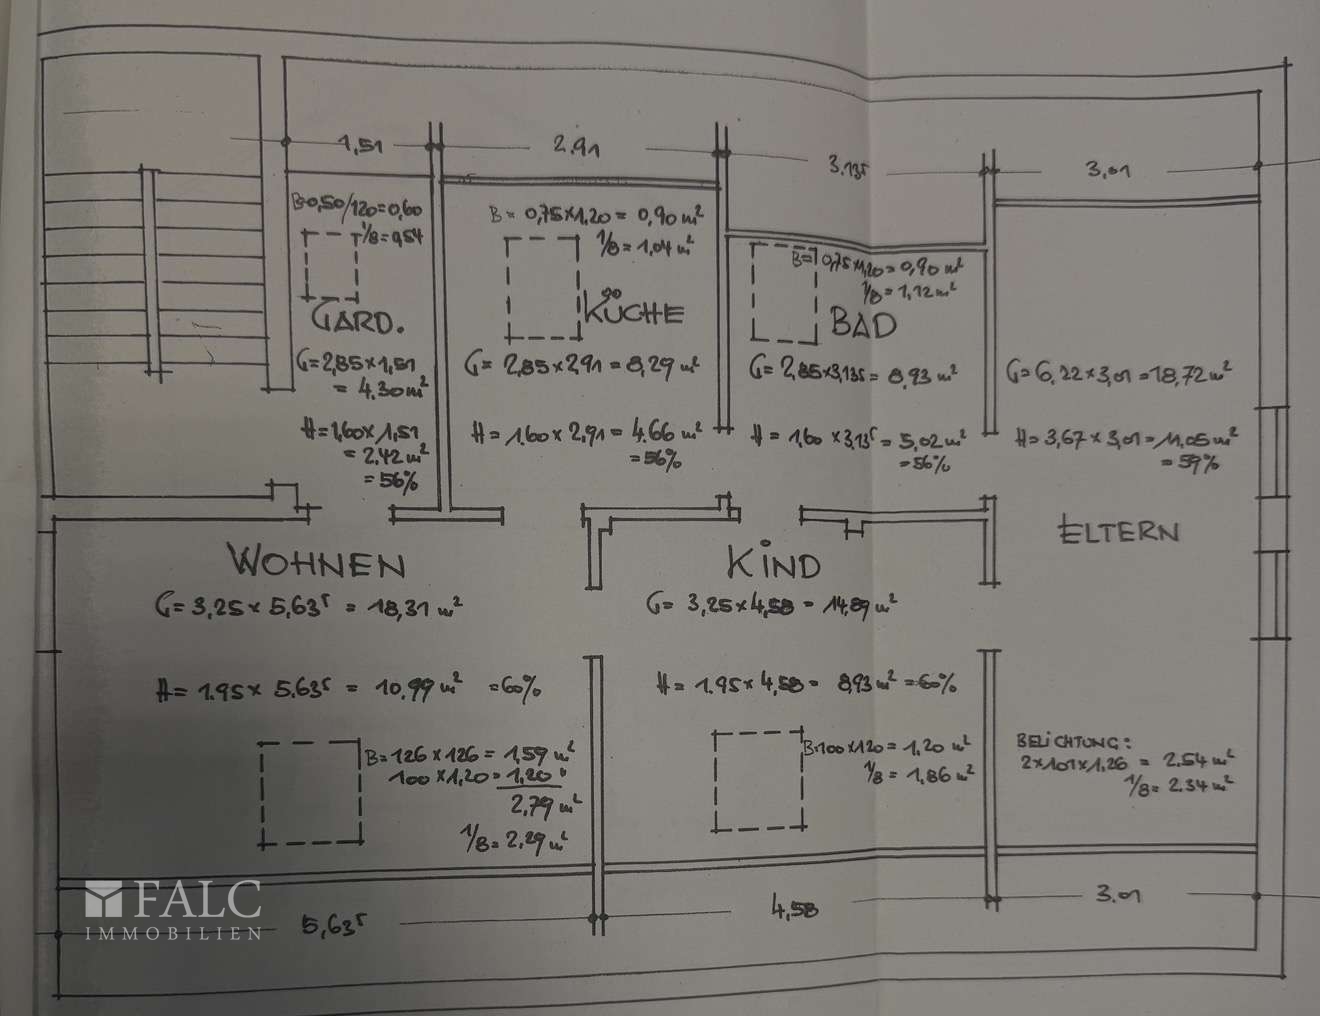 1,51
2.91
3,13⁵
3,01
B=0,50/120=0,60
1/8=0,54
GARD.
G=2,85×1,51
= 4.30 m²
H=1,60×1,51
= 2,42 m²
= 56%
B= 0,75×1,20= 0,90 m²
1/8= 1,04 m²
KÜCHE
G= 2,85×2,91=8,29 m²
H= 1.60 × 2,91= 4.66 m²
=56%
B= 0,75×1,20=0,90 m²
1/8= 1,12 m²
BAD
G= 2,85×3,13⁵= 8,93 m²
H= 1,60 ×3,13⁵= 5,02 m²
=56%
G=6,22×3,01=18,72 m²
H=3,67×3,01=11,05 m²
= 59%
ELTERN
BELICHTUNG:
2×101×1,26 = 2.54 m²
1/8= 2.34 m²
WOHNEN
G= 3,25× 5,63⁵ = 18,31 m²
H= 1.95× 5.63⁵ = 10,99 m² =60%
B=126×126= 1,59 m²
100×1,20=1,20 "
2,79 m²
1/8= 2,29 m²
KIND
G= 3,25×4,58= 14,89 m²
H= 1.95×4,58= 8,93 m²=60%
B=100×120=1,20 m²
1/8= 1,86 m²
5,63⁵
4,58
3.01
FALC
IMMOBILIEN